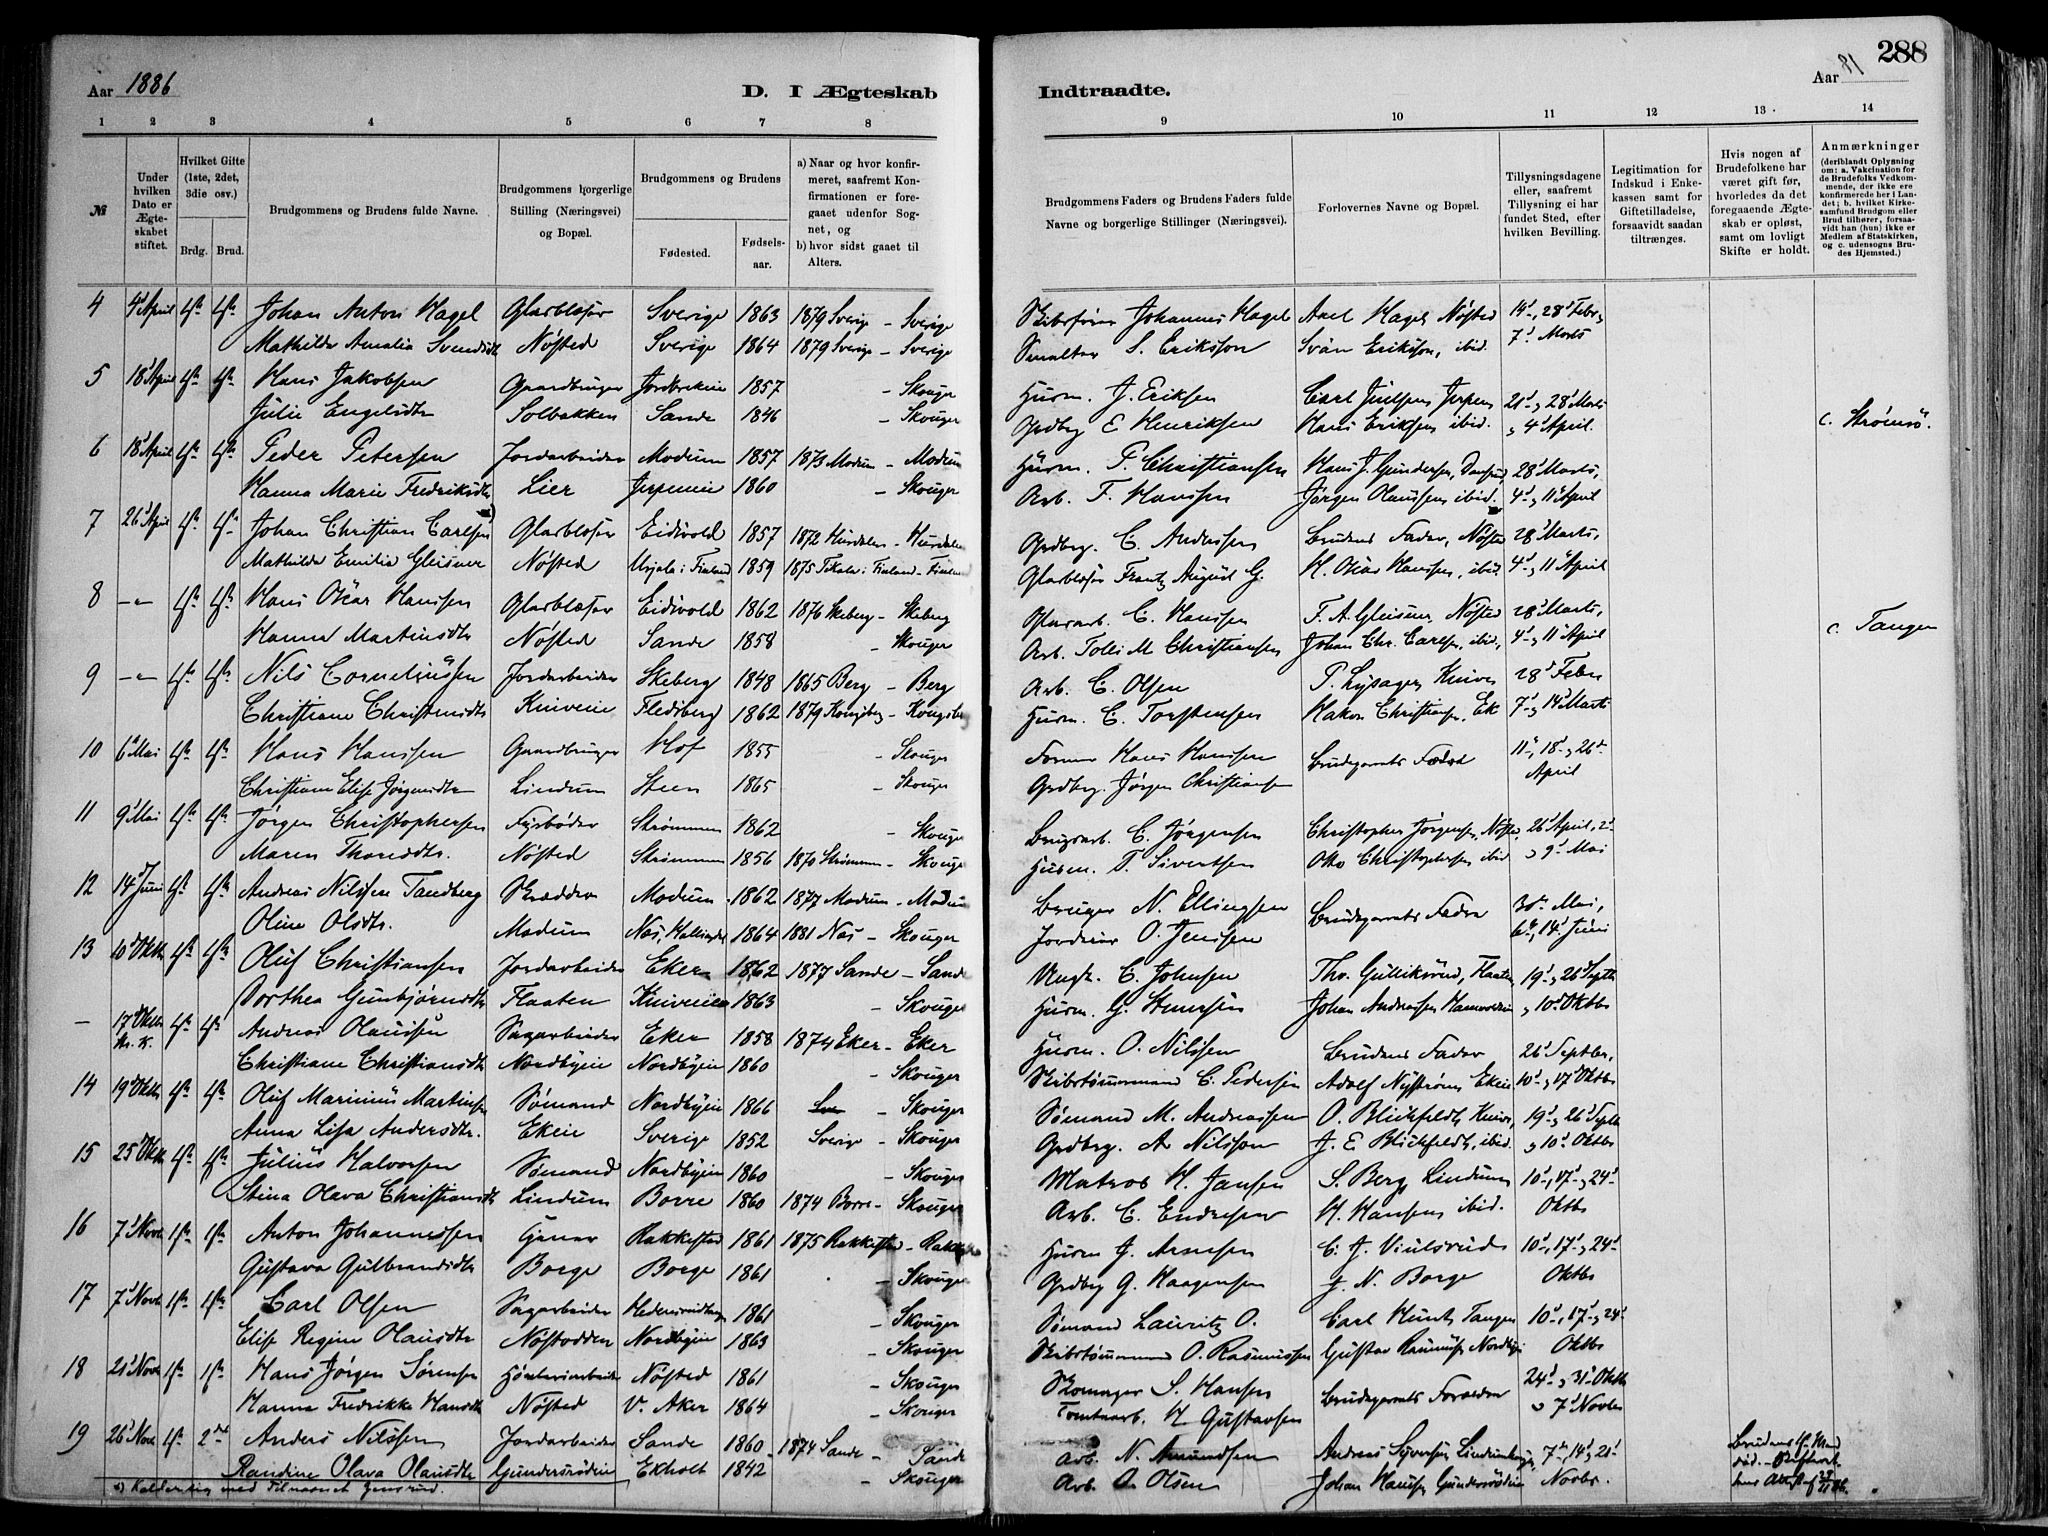 288
Aar 1886
D. I Ægteskab
Indtraadte.
Aar 18
1 2 3 4 5 6 7 8 9 10 11 12 13 14
№
Under hvilken Dato er Ægteskabet stiftet.
Hvilket Gifte (1ste, 2det, 3die osv.)
Brdg. Brud.
Brudgommens og Brudens fulde Navne.
Brudgommens borgerlige Stilling (Næringsvei) og Bopæl.
Brudgommens og Brudens
Fødested. Fødselsaar.
a) Naar og hvor konfirmeret, saafremt Konfirmationen er foregaaet udenfor Sognet, og
b) hvor sidst gaaet til Alters.
Brudgommens Faders og Brudens Faders fulde Navne og borgerlige Stillinger (Næringsvei).
Forlovernes Navne og Bopæl.
Tillysningsdagene eller, saafremt Tillysning ei har fundet Sted, efter hvilken Bevilling.
Legitimation for Indskud i Enkekassen samt for Giftetilladelse, forsaavidt saadan tiltrænges.
Hvis nogen af Brudefolkene har været gift før, hvorledes da det foregaaende Ægteskab er opløst, samt om lovligt Skifte er holdt.
Anmærkninger (deriblandt Oplysning om: a. Vakcination for de Brudefolks Vedkommende, der ikke ere konfirmerede her i Landet; b. hvilket Kirkesamfund Brudgom eller Brud tilhører, forsaavidt han (hun) ikke er Medlem af Statskirken, og c. udensogns Brudes Hjemsted.)
4 4' April 1ste 1ste Johan Anton Hagel Glarblæser Sverige 1863 1879 Sverige - Sverige Skibsfører Johannes Hagel Axel Hagel, Nøsted 14', 28' Febr.
Mathilde Amalia Svendsdtr Nøsted Sverige 1864 1879 Sverige - Sverige Smalter S. Eriksson Svän Eriksson, ibid. 7' Marts
5 18' April 1ste 1ste Hans Jakobsen Gaardbruger 1857 - Skouger Husm. J. Eriksen Carl Juelsen 21', 28' Marts
Julie Engelsdtr Solbakken Sande 1846 - Skouger Grdbrg E Henriksen Hans Eriksen ibid. 4' April. c. Strømsö.
6 18' April 1ste 1ste Peder Petersen Jordarbeider Modum 1857 1873 Modum - Modum Husm. P. Christiansen Hans J. Gundersen, 28' Marts,
Hanna Marie Fredriksdtr Lier 1860 - Skouger Arb. F. Hansen Jørgen Olaussen ibid. 4', 11' April
7 26' April 1ste 1ste Johan Christian Carlsen Glarblæser Eidsvold 1857 1872 Hurdalen - Hurdalen Grdbrg. C. Andersen Brudens Fader, Nøsted 28' Marts,
Mathilde Emilia Gleisner Nøsted Urjala i Finland 1859 1875 Tikala i Finland - Finland Glarblæser Frantz August G. H. Oscar Hanssen, ibid. 4', 11' April
8 -"- 1ste 1ste Hans Oscar Hanssen Glarblæser Eidsvold 1862 1876 Skeberg - Skeberg Glasarb. C. Hanssen F. A. Gleisner Nøsted 28' Marts,
Hanna Martinsdtr Nøsted Sande 1858 - Skouger Arb. Tolli M Christiansen Johan Chr. Carlsen, ibid, 4', 11' April c. Tangen
9 -"- 1ste 1ste Nils Corneliussen Jordarbeider Skeberg 1848 1865 Berg - Berg Arb. C. Olsen P. Lysager, Kniven 28' Febr
Christiane Christensdtr Kniveeie Flesberg 1862 1879 Kongsberg - Kongsberg Husm. C. Torstensen Hakon Christiansen, Ek 7', 14' Marts
10 6' Mai 1ste 1ste Hans Hanssen Gaardbruger Hof 1855 - Skouger Former Hans Hanssen Brudgomets Fader 11', 18', 26'
Christiane Elise Jørgensdtr Lindum Steen 1865 - Skouger Grdbrg. Jørgen Christiansen April
11 9' Mai 1ste 1ste Jørgen Christophersen Fyrbøder Strømmen 1862 - Skouger Brugsarb. C. Jørgensen Christopher Jørgensen, Nøsted 26' April, 2'
Maren Thoresdtr. Nøsted Strømmen 1856 1870 Strømmen - Skouger Husm. T. Sivertsen Otto Christophersen ibid 9' Mai
12 14' Juni 1ste 1ste Andreas Nilssen Tandberg Skrædder Modum 1862 1877 Modum - Modum Bruger N. Ellingsen Brudgomets Fader 30' Mai,
Oline Olsdtr. Modum Næs, Hallingdal 1864 1881 Næs - Skouger O. Jenssen 6', 14' Juni
13 10' Oktbr 1ste 1ste Oluf Christiansen Jordarbeider Eker 1862 1877 Sande - Sande C. Johnsen Thv. Gulliksrud, Flaaten 19', 26' Septbr
Dorthea Gunbjørnsdtr Flaaten Kniveeien 1863 - Skouger Husm. G. Stenersen Johan Andreassen 10' Oktbr
- 17' Oktbr 1ste 1ste Andreas Olaussen Sagarbeider Eker 1858 1874 Eker - Eker Husm. O. Nilssen Brudens Fader 26' Septbr,
Christiane Christiansdtr Nordbyeie Nordbyeie 1860 - Skouger Skibstømmermand C. Pedersen Adolf Nystrøm, Ekeie 10', 17' Oktbr
14 19' Oktbr 1ste 1ste Oluf Marinius Martinsen Sømand Nordbyeie 1866 - Skouger Sømand M. Andreassen O. Blichfeldt, Kniven, 19', 26' Septbr
Anna Lisa Andersdtr. Ekeie Sverige 1852 Sverige - Skouger Grdbrg. A. Nilsson J. E Blichfeldt, ibid. 10' Oktbr
15 25' Oktbr 1ste 1ste Julius Halvorsen Sømand Nordbyeie 1860 - Skouger Matros H. Jansen S. Berg, Lindum 10', 17', 24'
Stina Olava Christiansdtr Lindum Borre 1860 1874 Borre - Skouger Arb. C. Endresen H. Hansen ibid. Oktbr
16 7' Novbr 1ste 1ste Anton Johannessen Rakkestad 1861 1875 Rakkestad - Husm J. Arnesen C. J. Viulsrud 10', 17', 24'
Gustava Gulbrandsdtr Borge Borge 1861 - Skouger Grdbrg G. Haagensen J. N. Borge Oktbr
17 7' Novbr 1ste 1ste Carl Olsen Sagarbeider 1861 - Skouger Sømand Lauritz O. Carl Hunt, Tangen 10', 17', 24'
Elise Regine Olausdtr Nøstodden Nordbyeie 1863 - Skouger Skibstømmermand O. Rasmussen Gustav Rasmussen Nordbyeie Oktbr
18 21' Novbr 1ste 1ste Hans Jørgen Sørensen Nøsted 1861 - Skouger Skomager S. Hansen Brudgomets Forældre 24', 31' Oktbr
Hanna Fredrikke Hansdtr Nøsted V. Aker 1864 - Skouger Tomtearb. H Gustavsen 7' Novbr
19 26' Novbr 1ste 2det Anders Nilssen Jordarbeider Sande 1860 1874 Sande - Sande Arb. N. Amundsen Andreas Syversen 7', 14', 21' Brudens 1ste Mand
Randine Olava Olausdtr Gundersrudeie Ekholt 1842 - Skouger Arb. O. Olsen Johan Hansen Gundersrudeie Novbr. død. - Skifteret-
tens Attest af
*) Kalder sig med Tilnavnet Jensrud.